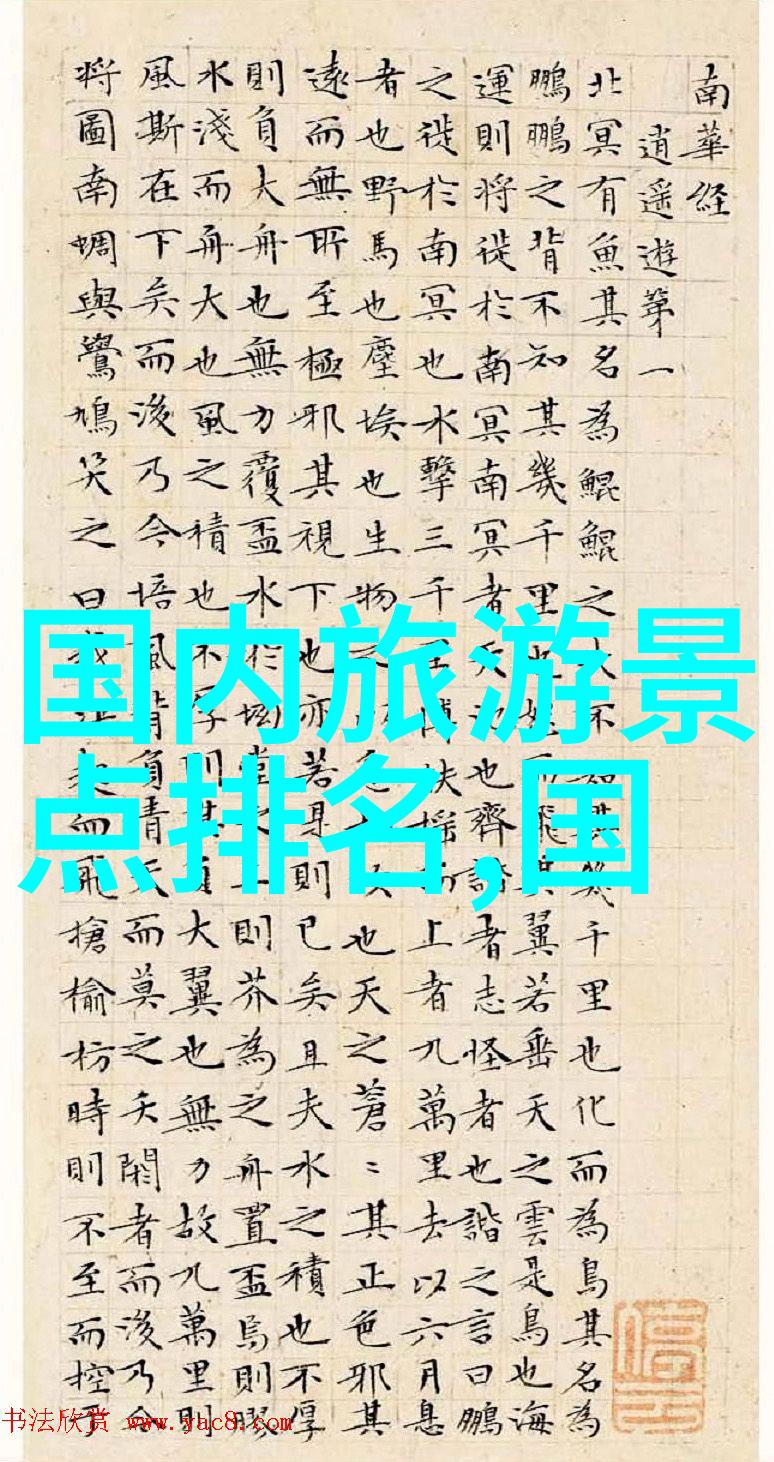 南華經
逍遥遊第一
北冥有魚其名為鯤鯤之大不知其幾千里也化而為鳥其名為
鵬鵬之背不知其幾千里也 而飛其翼若垂天之雲是鳥也海
運則將徙於南冥南冥者天池也齊諧者志怪者也諧之言曰鵬
之徙於南冥也水擊三千里摶扶揺而上者九萬里去以六月息
者也野馬也塵埃也生物之 也天之蒼〻其正色邪其
遠而無所至極邪其視下也亦若是則已矣且夫水之積也不厚
則負大舟也無力覆盃水於坳堂 則芥為之舟置盃焉則膠
水淺而舟大也風之積也不厚則其負大翼也無力故九萬里則
風斯在下矣而後乃今培風背負青天而莫之夭閼者而後乃今
將圖南蜩與鷽鳩笑之曰我 而飛搶榆枋時則不至而控
国内旅游景
点排名,国
书法欣赏 www.yac8.com